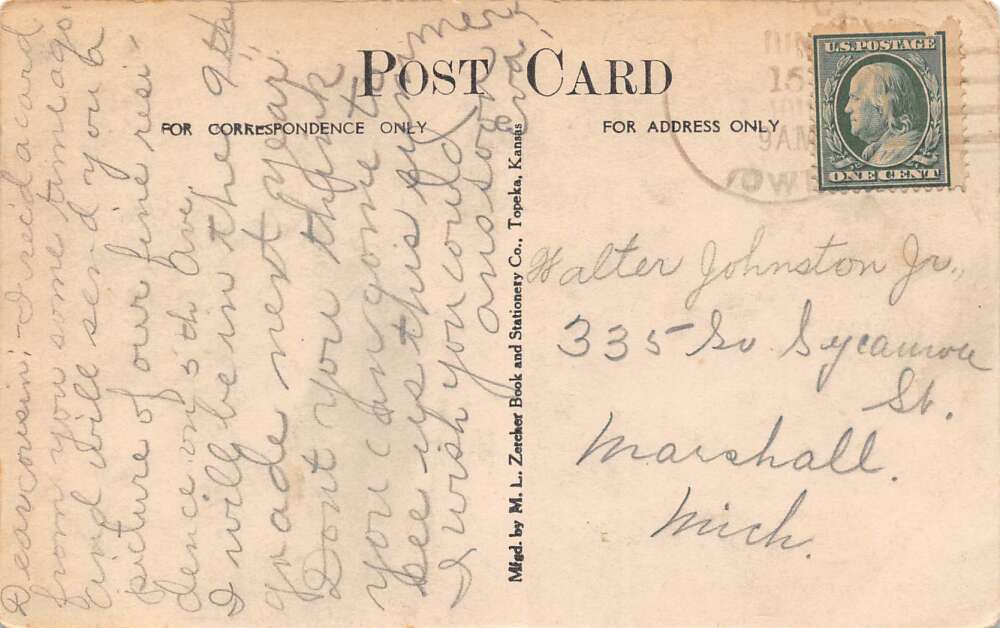 POST CARD
FOR CORRESPONDENCE ONLY
FOR ADDRESS ONLY
Dear cousin: I rec'd a card
from you some time ago.
and will send you a
picture of our fine resi-
dence on 5th ave.
I will be in the 9th
grade next year.
Dont you think
you can come to
see us this summer
I wish you could
ans soon
Eva
Mfgd. by M. L. Zercher Book and Stationery Co., Topeka, Kansas
U.S. POSTAGE
ONE CENT
15
9 AM
IOWA
Walter Johnston Jr.,
335 So Sycamore
St.
Marshall.
Mich.